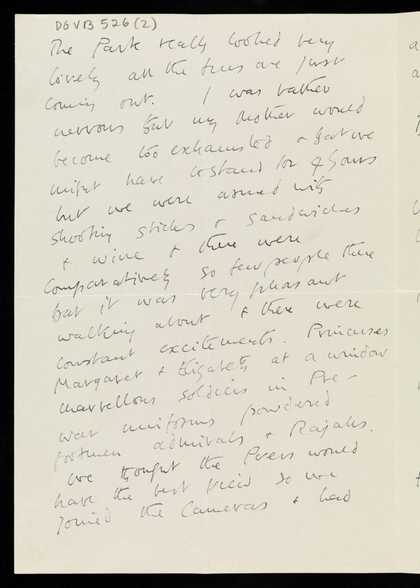 DGVB 526 (2)
The Park really looked very
lovely all the trees are just
coming out. I was rather
nervous that my Mother would
become too exhausted & that we
might have to stand for 4 hours
but we were armed with
shooting sticks & sandwiches
& wine & there were
comparatively so few people there
that it was very pleasant
walking about & there were
constant excitements. Princesses
Margaret & Elizabeth at a window
marvellous soldiers in Pre-
war uniforms powdered
footmen admirals & Rajahs.
We thought the Press would
have the best view so we
joined the Cameras & had